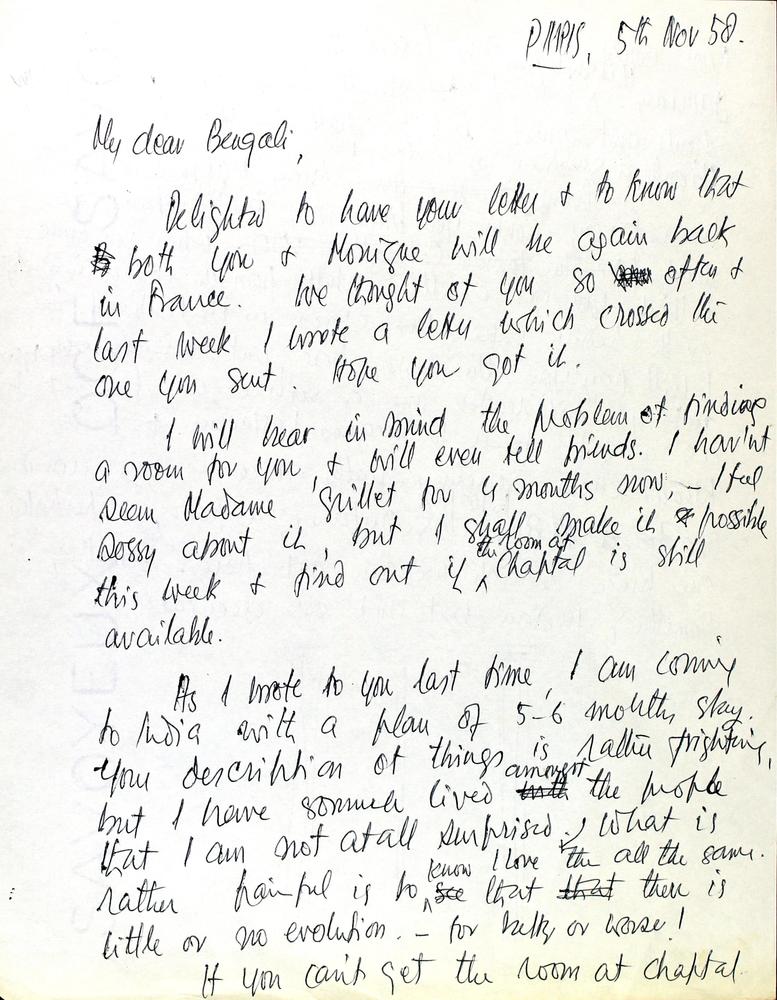 PARIS, 5th Nov 58.
My dear Bengali,
Delighted to have your letter & to know that
both you & Monique will be again back
in France. We thought of you so often &
last week I wrote a letter which crossed the
one you sent. Hope you got it.
I will bear in mind the problem of finding
a room for you, & will even tell friends. I hav'nt
seen Madame Grillet for 4 months now, – I feel
sorry about it, but I shall make it possible
this week & find out if the room at Chaptal is still
available.
As I wrote to you last time, I am coming
to India with a plan of 5-6 months stay.
Your description of things is rather frighting,
but I have somuch lived amongst the people
that I am not atall surprised. What is
I love the all the same.
rather painful is to know that there is
little or no evolution. – for better or worse!
If you can't get the room at Chaptal